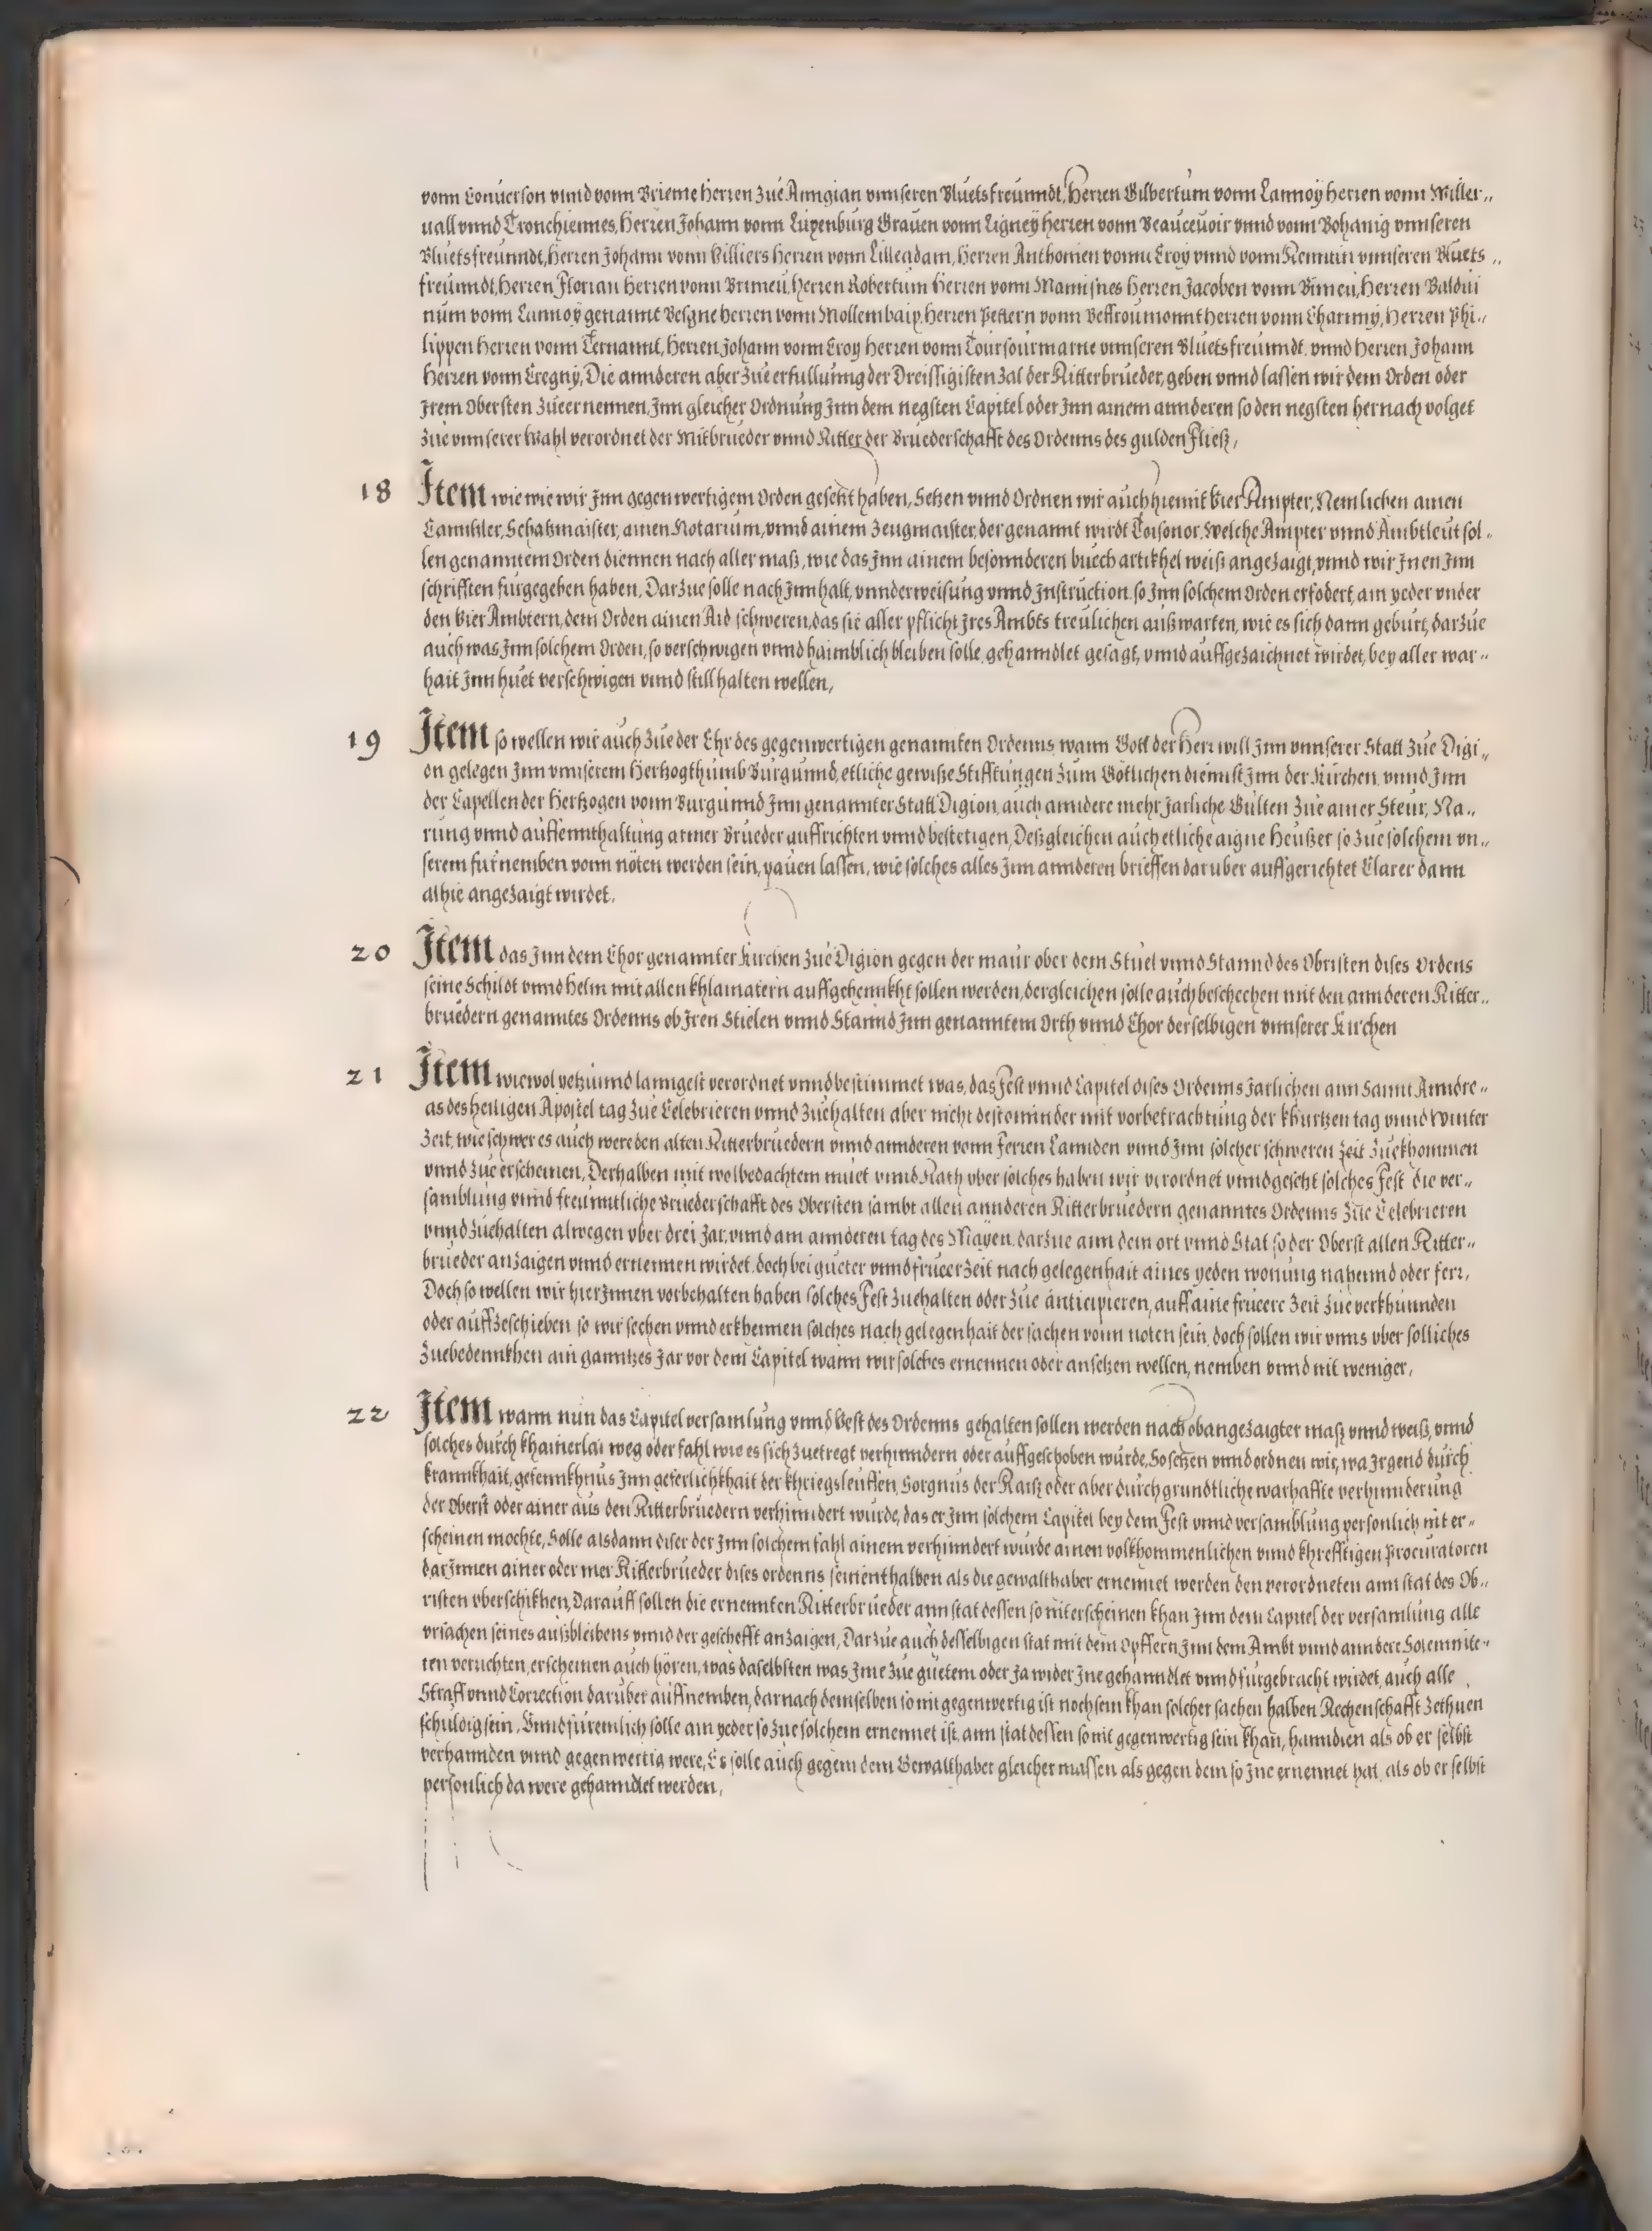 vonn Conuerson vnnd vonn Brieme Herren Zue Anngian vnnseren Bluetsfreunndt, Herren Gilbertum vonn Lannoy herren vonn Willer„
uall vnnd Tronchiennes, Herren Johann vonn Luxenburg Grauen vonn Ligney herren vonn Beauceuoir vnnd vonn Bohanig vnnseren
Bluetsfreunndt, Herren Johann vonn Villiers Herren vonn Lilleadam, Herren Anthonien vonnu Croy vnnd vonn Renntin vnnseren Bluets„
freunndt, Herren Florian Herren vonn Brimeu, Herren Robertum Herren vonn Mamisnes Herren Jacoben vonn Bimeu, Herren Baldui
num vonn Lannoy genannt Besgne herren vonn Mollembaix, Herren Pettern vonn Beffroumonnt herren vonn Charnny, Herren Phi„
lippen Herren vonn Ternannt, Herren Johann vonn Croy Herren vonn Toursourmarne vnnseren Bluetsfreunndt, vnnd Herren Johann
Herren vonn Cregny, Die annderen aber Zue erfullunng der Dreissigisten Zal der Ritterbrueder, geben vnnd lassen wir dem Orden oder
Jrem Obersten Zueernennen, Jnn gleicher Ordnung Jnn dem negsten Capitel oder Jnn ainem annderen so den negsten hernach volget
Zue vnnserer Wahl verordnet der Mitbrueder vnnd Ritter der Bruederschafft des Ordenns des gulden Fließ,
18 Item wie wie wir Jnn gegenwertigem Orden gesetzt haben, Setzen vnnd Ordnen wir auch hiemit Vier Ampter, Nemlichen ainen
Canntzler, Schatzmaister, ainen Notarium, vnnd ainem Zeugmaister, der genannt wirdt Toisonor, Welche Ampter vnnd Ambtleut sol„
len genanntem Orden diennen nach aller maß, wie das Jnn ainem besonnderen buech artikhel weiß angezaigt, vnnd wir Jnen Jnn
schrifften furgegeben haben, Darzue solle nach Jnnhalt, vnnderweisung vnnd Jnstruction, so Jnn solchem Orden erfodert, ain yeder vnder
den Vier Ambtern, dem Orden ainen Aid schweren, das sie aller pflicht Jres Ambts treulichen außwarten, wie es sich dann geburt, darzue
auch was Jnn solchem Orden, so verschwigen vnnd haimblich bleiben solle, gehanndlet gesagt, vnnd auffgezaichnet wirdet, bey aller war„
hait Jnn huet verschwigen vnnd still halten wellen,
19 Item so wellen wir auch Zue der Ehr des gegenwertigen genannten Ordenns, wann Gott der Herr will Jnn vnnserer Statt Zue Digi„
on gelegen Jnn vnnserem Hertzogthumb Burgunnd, etliche gewiße Stifftungen Zum Götlichen diennst Jnn der Kirchen, vnnd Jnn
der Capellen der Hertzogen vonn Burgunnd Jnn genannter Statt Digion, auch anndere mehr Jarliche Gulten Zue ainer Steur, Na„
rung vnnd auffennthaltung armer Brueder auffrichten vnnd bestetigen, Deßgleichen auch etliche aigne Heußer so Zue solchem vn„
serem furnemben vonn nöten werden sein, pauen lassen, wie solches alles Jnn annderen brieffen daruber auffgerichtet Clarer dann
alhie angezaigt wirdet.
20 Item das Jnn dem Chor genannter Kirchen Zue Digion gegen der maur ober dem Stuel vnnd Stannd des Obristen dises Ordens
seine Schildt vnnd Helm mit allen khlainatern auffgehennkht sollen werden, dergleichen solle auch beschechen mit den annderen Ritter„
bruedern genanntes Ordenns ob Jren Stielen vnnd Stannd Jnn genanntem Orth vnnd Chor derselbigen vnnserer Kirchen
21 Item wiewol yetzunnd lanngest verordnet vnnd bestimmet was, das Fest vnnd Capitel dises Ordenns Jarlichen ann Sannt Anndre„
as des heiligen Apostel tag Zue Celebrieren vnnd Zuehalten aber nicht destominder mit vorbetrachtung der khurtzen tag vnnd winter
Zeit, wie schwer es auch were den alten Ritterbruedern vnnd annderen vonn ferren Lannden vnnd Jnn solcher schweren Zeit Zuekhommen
vnnd Zue erscheinen, Derhalben mit wolbedachtem muet vnnd Rath vber solches haben wir verordnet vnnd gesetzt solches Fest die ver„
samblung vnnd freunntliche Bruederschafft des Obersten sambt allen annderen Ritterbruedern genanntes Ordenns Zue Celebrieren
vnnd Zuehalten alwegen vber drei Jar, vnnd am annderen tag des Mayen, darzue ann dem ort vnnd Stat so der Oberst allen Ritter„
brueder anzaigen vnnd ernennen wirdet, doch bei gueter vnnd frueer Zeit nach gelegenhait aines yeden wonung nahennd oder ferr,
Doch so wellen wir hierJnnen vorbehalten haben solches Fest Zuehalten oder Zue anticipieren, auff aine frueere Zeit Zue verkhunnden
oder auffzeschieben so wir sechen vnnd erkhennen solches nach gelegenhait der sachen vonn noten sein, doch sollen wir vnns vber solliches
Zuebedennkhen ain ganntzes Jar vor dem Capitel wann wir solches ernennen oder ansetzen wellen, nemben vnnd nit weniger,
22 Item wann nun das Capitel versamlung vnnd Vest des Ordenns gehalten sollen werden nach obangezaigter maß vnnd weiß, vnnd
solches durch khainerlai weg oder fahl wie es sich Zuetregt verhinndern oder auffgeschoben wurde, So setzen vnnd ordnen wir, wa Jrgend durch
krannkhait, gefennkhnus Jnn geferlichkhait der khriegsleuffen, Sorgnus der Raiß oder aber durch grundtliche warhaffte verhinnderung
der Oberst oder ainer aus den Ritterbruedern verhinndert wurde, das er Jnn solchem Capitel bey dem Fest vnnd versamblung personlich nit er„
scheinen mochte, Solle alsdann diser der Jnn solchem fahl ainem verhinndert wurde ainen volkhommenlichen vnnd khrefftigen Procuratoren
darJnnen ainer oder mer Ritterbrueder dises ordenns seinenthalben als die gewalthaber ernennet werden den verordneten ann stat des Ob„
risten vberschikhen, Darauff sollen die ernennten Ritterbrueder ann stat dessen so nit erscheinen khan Jnn dem Capitel der versamlung alle
vrsachen seines außbleibens vnnd der geschefft anzaigen, Darzue auch desselbigen stat mit dem Opffern Jnn dem Ambt vnnd anndere Solemnite„
ten verrichten, erscheinen auch hören, was daselbsten was Jme Zue guetem oder Ja wider Jne gehanndlet vnnd furgebracht wirdet, auch alle
Straff vnnd Correction daruber auffnemben, darnach demselben so nit gegenwertig ist noch sein khan solcher sachen halben Rechenschafft Zethuen
schuldig sein, Vnnd furemlich solle ain yeder so Zue solchem ernennet ist, ann stat dessen so nit gegenwertig sein khan, hanndlen als ob er selbst
verhannden vnnd gegenwertig were, Es solle auch gegem dem Gewalthaber gleicher massen als gegen dem so Jne ernennet hat, als ob er selbst
personlich da were gehanndlet werden,